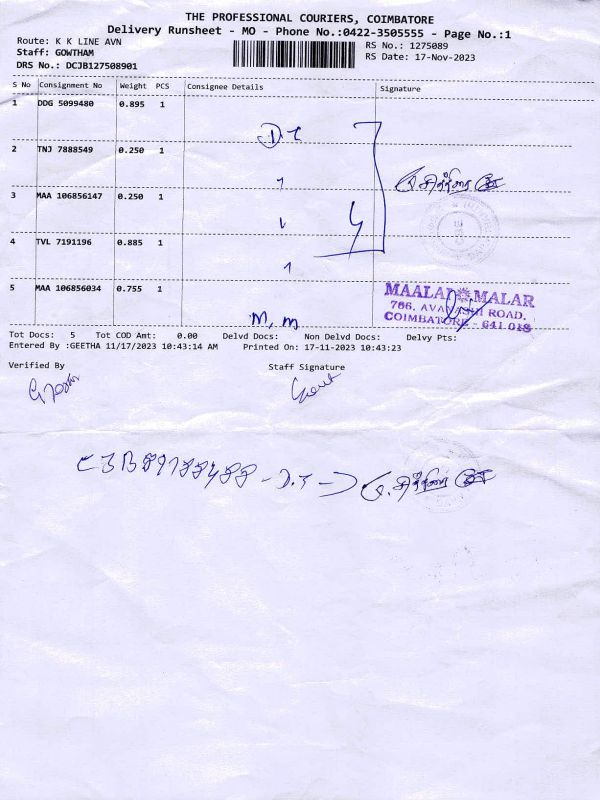 THE PROFESSIONAL COURIERS, COIMBATORE
Delivery Runsheet - MO - Phone No.:0422-3505555 - Page No.:1
Route: K K LINE AVN
RS No.: 1275089
Staff: GOWTHAM
RS Date: 17-Nov-2023
DRS No.: DCJB127508901
S No Consignment No Weight PCS Consignee Details Signature
1 DDG 5099480 0.895 1
D.T
2 TNJ 7888549 0.250 1
3 MAA 106856147 0.250 1
4
4 TVL 7191196 0.885 1
5 MAA 106856034 0.755 1
MAALAI MALAR
766, AVANASHI ROAD,
COIMBATORE - 641 018
M, m
Tot Docs: 5 Tot COD Amt: 0.00 Delvd Docs: Non Delvd Docs: Delvy Pts:
Entered By :GEETHA 11/17/2023 10:43:14 AM Printed On: 17-11-2023 10:43:23
Verified By Staff Signature
CJB89788488 - D.T -